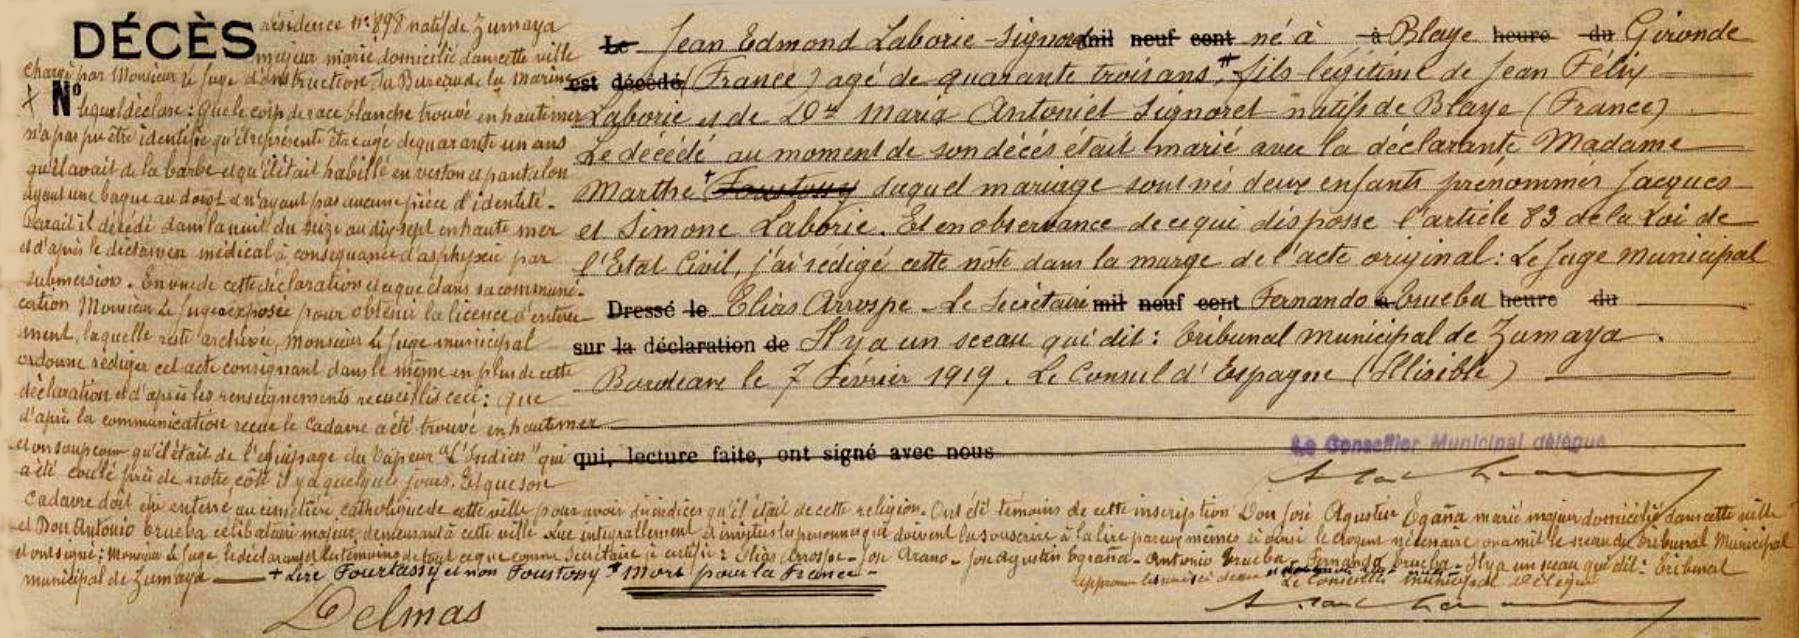 DÉCÈS
résidence n: 898 natif de Zumaya
majeur marié domicilié dans cette ville
chargé par Monsieur le Juge d'instruction du Bureau de la marine
+ N°
lequel déclare: que le corp de race blanche trouvé en haute mer
n'a pas pu être identifié qu'il représente être agé de quarante un ans
qu'il avait de la barbe et qu'il était habillé en veston et pantalon
ayant une bague au doigt et n'ayant pas aucune pièce d'identité.
Parait il décédé dans la nuit du seize au dix-sept en haute mer
et d'après le dictamen médical à conséquance d'asphyxie par
submersion. En vue de cette déclaration et que dans sa communi-
cation Monsieur le Juge exposée pour obtenir la licence d'enterre-
ment, laquelle reste archivée, Monsieur le Juge municipal
ordonne rédiger cet acte consignant dans le même en plus de cette
déclaration et d'après les renseignements recueillis ceci: que
d'après la communication reçue le cadavre a été trouvé en haute mer
et on soupçonne qu'il était de l'équipage du Vapeur "L'Indien" qui
a été coulé près de notre côte il y a quelques jours. Et que son
cadavre doit être enterré au cimetière catholique de cette ville pour avoir d'indices qu'il était de cette religion. Ont été témoins de cette inscription Don José Agustin Egaña marié majeur domicilié dans cette ville
et Don Antonio Trueba célibataire majeur, demeurant à cette ville. Lue intégrallement et invités les personnes qui doivent la souscrire à la lire par eux mêmes si ainsi le croyent nécessaire on a mit le sceau du tribunal Municipal
et ont signé: Monsieur le Juge le déclarant et les témoins de tout ce que comme Secrétaire je certifie: Elias Arrospe - Jose Arano - Jose Agustin Egaña - Antonio Trueba - Fernando Trueba - Il y a un sceau qui dit: Tribunal
municipal de Zumaya
+ Lire Fourtassy et non Foustossy # Mort pour la France -
Le Conseiller municipal délégué
Delmas
Le Jean Edmond Laborie - Signoret mil neuf cent né à à Blaye heure du Gironde
est décédé (France) agé de quarante trois ans #, fils légitime de Jean Félix
Laborie et de Dme Maria Antoniet Signoret natifs de Blaye (France)
Le décédé au moment de son décès était marié avec la déclarante Madame
Marthe + Foustossy duquel mariage sont nés deux enfants prénommés Jacques
et Simone Laborie. Et en observance de ce qui disposse l'article 83 de la Loi de
l'Etat Civil, j'ai rédigé cette note dans la marge de l'acte original: Le Juge municipal
Dressé le Elias Arrospe - Le Secrétaire mil neuf cent Fernando à Trueba heure du
sur la déclaration de Il y a un sceau qui dit: Tribunal municipal de Zumaya.
Bordeaux le 7 Février 1919. Le Consul d'Espagne (Illisible)
qui, lecture faite, ont signé avec nous
Le Conseiller Municipal délégué